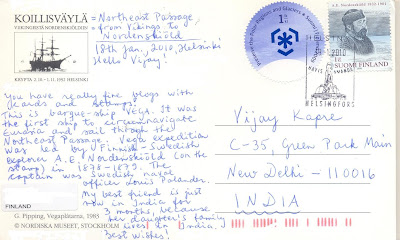 KOILLISVÄYLÄ
VIIKINGEISTÄ NORDENSKIÖLDIIN
KRYPTA 2.10.–1.11.1992 HELSINKI
= Northeast Passage
- from Vikings to
Nordenskiöld
18th Jan, 2010, Helsinki
Hello Vijay!
You have really fine blogs with
cards and stamps.
This is barque-ship Vega. It was
the first ship to circumnavigate
Eurasia and sail though the
Northeast Passage. Vega expedition
was led by Finnish-Swedish
explorer A.E. Nordenskiöld (on the
stamp) in 1878-1879. The
captain was Swedish naval
officer Louis Palander.
My best friend is just
now in India for
3 months, because
her daughter's family
lives in India,
Best wishes!
FINLAND
G. Pipping, Vegaplåtarna, 1985
© NORDISKA MUSEET, STOCKHOLM
Preserve the Polar Regions and Glaciers
1
A.E. Nordenskiöld
SUOMI FINLAND
2010
HELSINGFORS
Vijay Kapre
C-35, Green Park Main
New Delhi - 110016
INDIA